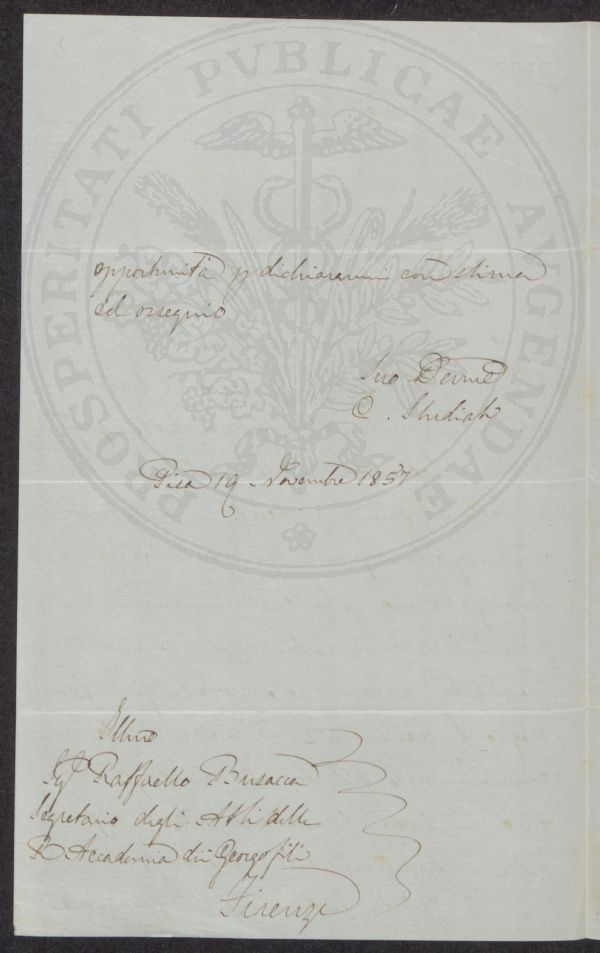 PROSPERITATI PVBLICAE AVGENDAE
opportunità p dichiararmi con stima
ed ossequio
Suo Devmo
C. Studiati
Pisa 19 Novembre 1857
Illmo
Sigr Raffaello Busacca
Segretario degli Atti della
R Accademia dei Georgofili
Firenze